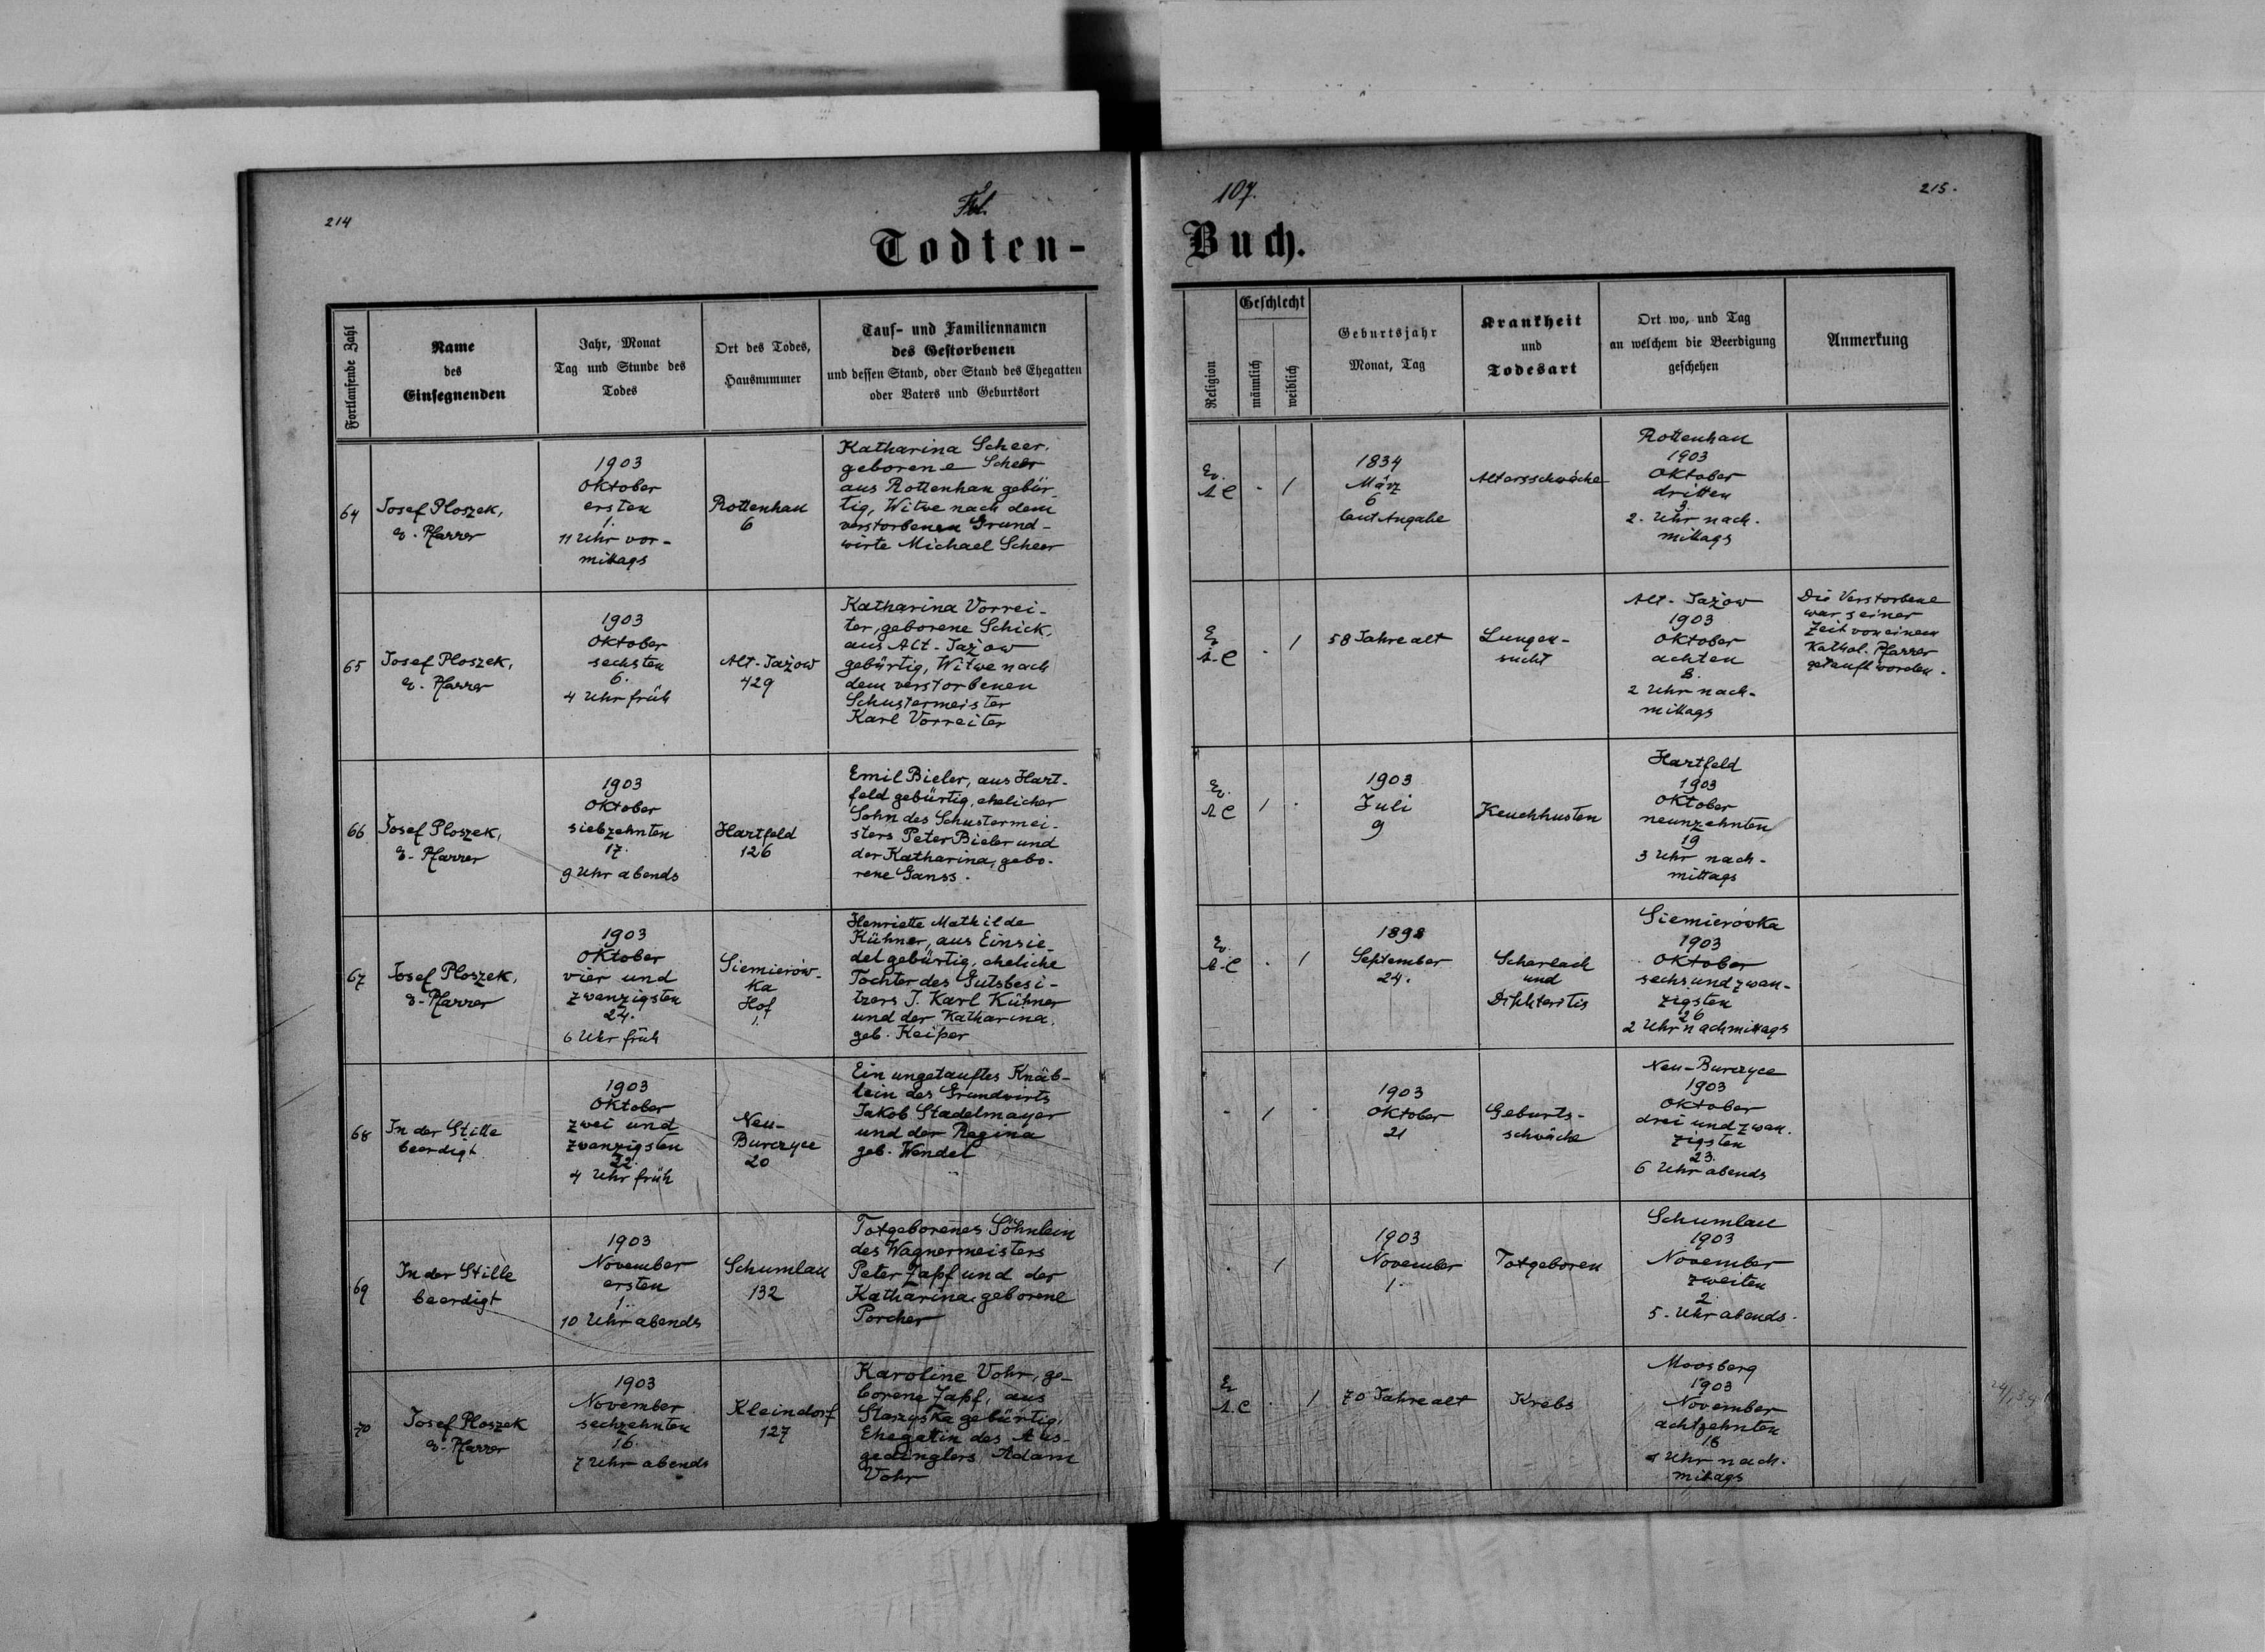 214
Fol.
107.
215.
Todten-
Buch.
Fortlaufende Zahl
Name
des
Einsegnenden
Jahr, Monat
Tag und Stunde des
Todes
Ort des Todes,
Hausnummer
Tauf- und Familiennamen
des Gestorbenen
und dessen Stand, oder Stand des Ehegatten
oder Vaters und Geburtsort
Religion
Geschlecht
männlich
weiblich
Geburtsjahr
Monat, Tag
Krankheit
und
Todesart
Ort wo, und Tag
an welchem die Beerdigung
geschehen
Anmerkung
64
Josef Ploszek,
e. Pfarrer
1903
Oktober
ersten
1.
11 Uhr vor-
mittags
Rottenhan
6
Katharina Scheer,
geborene Scheer
aus Rottenhan gebür-
tig, Witve nach dem
verstorbenen Grund-
wirte Michael Scheer
Ev.
A C
-
1
1834
März
6
laut Angabe
Altersschwäche
Rottenhan
1903
Oktober
dritten
3.
2. Uhr nach-
mittags
65
Josef Ploszek,
e. Pfarrer
1903
Oktober
sechsten
6.
4 Uhr früh
Alt-Jażow
429
Katharina Vorrei-
ter, geborene Schick,
aus Alt-Jażow
gebürtig, Witwe nach
dem verstorbenen
Schustermeister
Karl Vorreiter
Ev
A.C
-
1
58 Jahre alt
Lungen-
sucht
Alt-Jażow
1903
Oktober
achten
8.
2 Uhr nach-
mittags
Die Verstorbene
war seiner
Zeit von einem
Kathol. Pfarrer
getauft worden.
66
Josef Ploszek,
e. Pfarrer
1903
Oktober
siebzehnten
17.
9 Uhr abends
Hartfeld
126
Emil Bieler, aus Hart-
feld gebürtig, ehelicher
Sohn des Schustermei-
sters Peter Bieler und
der Katharina, gebo-
rene Ganss.
Ev.
A C
1
-
1903
Juli
9
Keuchhusten
Hartfeld
1903
Oktober
neunzehnten
19
3 Uhr nach-
mittags
67
Josef Ploszek,
e. Pfarrer
1903
Oktober
vier und
zwanzigsten
24.
6 Uhr früh
Siemierów-
ka
Hof
1.
Henriette Mathilde
Kühner, aus Einsie-
del gebürtig, eheliche
Tochter des Gutsbesi-
tzers J. Karl Kühner
und der Katharina,
geb. Keiper
Ev.
A.C
-
1
1898
September
24.
Scharlach
und
Diphteritis
Siemierówka
1903
Oktober
sechs und zwan-
zigsten
26
2 Uhr nachmittags
68
In der Stille
beerdigt
1903
Oktober
zwei und
zwanzigsten
22.
4 Uhr früh
Neu-
Burczyce
20
Ein ungetauftes Knäb-
lein des Grundvirts
Jakob Stadelmayer
und der Regina
geb. Wendel
-
1
-
1903
Oktober
21
Geburts-
schwäche
Neu-Burczyce
1903
Oktober
drei und zwan-
zigsten
23.
6 Uhr abends
69
In der Stille
beerdigt
1903
November
ersten
1.
10 Uhr abends
Schumlau
132
Totgeborenes Söhnlein
des Wagnermeisters
Peter Zapf und der
Katharina, geborene
Porcher
-
1
1903
November
1.
Totgeboren
Schumlau
1903
November
zweiten
2.
5. Uhr abends.
70
Josef Ploszek
e. Pfarrer
1903
November
sechzehnten
16.
7 Uhr abends
Kleindorf
127
Karoline Vohr, ge-
borene Zapf, aus
Starzyska gebürtig,
Ehegattin des Aus-
gedinglers Adam
Vohr
Ev
A.C
-
1
70 Jahre alt
Krebs
Moosberg
1903
November
achtzehnten
18
Uhr nach-
mittags